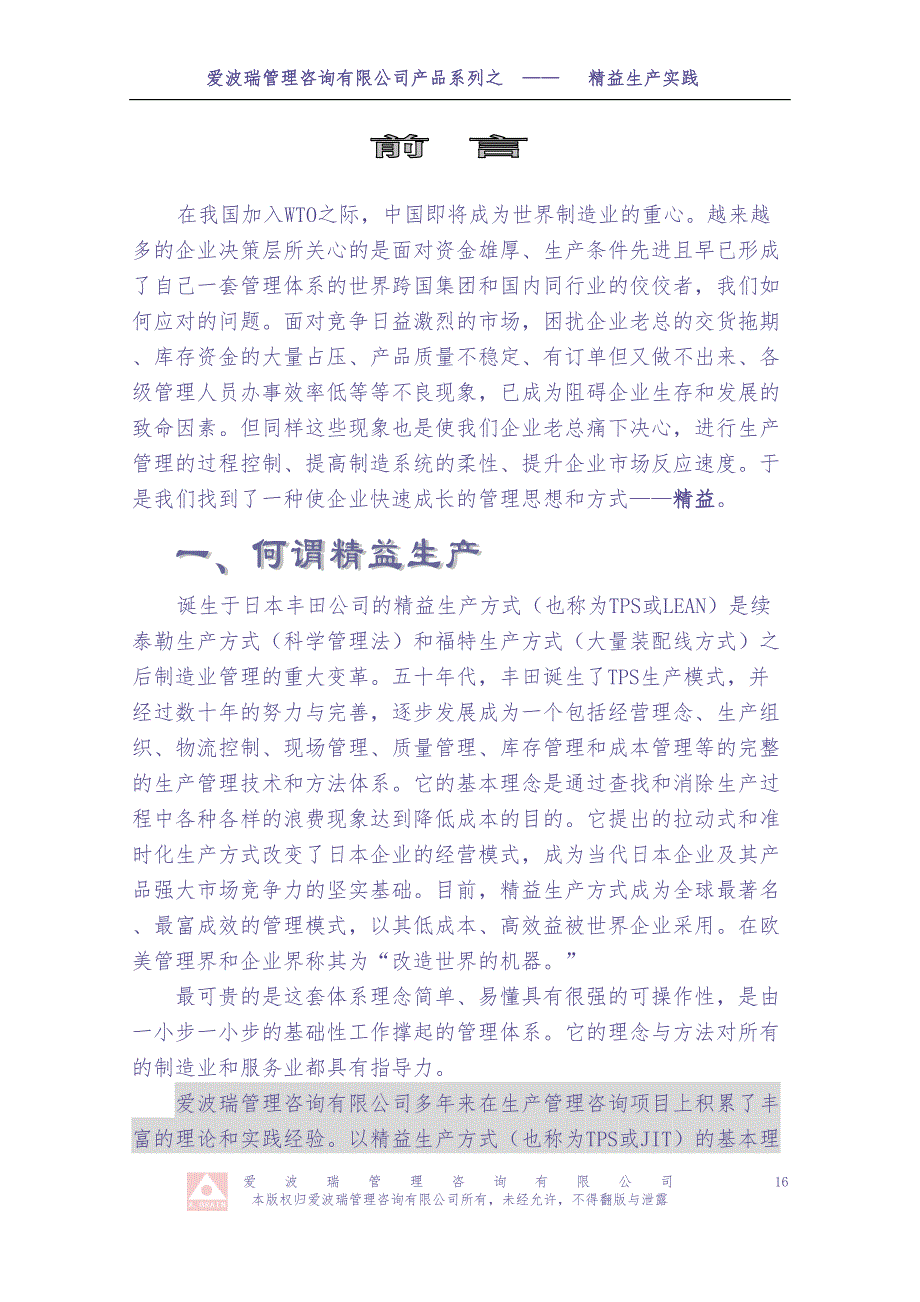 爱波瑞管理咨询有限公司产品系列之 —— 精益生产实践
前 言
在我国加入WTO之际，中国即将成为世界制造业的重心。越来越
多的企业决策层所关心的是面对资金雄厚、生产条件先进且早已形成
了自己一套管理体系的世界跨国集团和国内同行业的佼佼者，我们如
何应对的问题。面对竞争日益激烈的市场，困扰企业老总的交货拖期
、库存资金的大量占压、产品质量不稳定、有订单但又做不出来、各
级管理人员办事效率低等等不良现象，已成为阻碍企业生存和发展的
致命因素。但同样这些现象也是使我们企业老总痛下决心，进行生产
管理的过程控制、提高制造系统的柔性、提升企业市场反应速度。于
是我们找到了一种使企业快速成长的管理思想和方式——精益。
一、何谓精益生产
诞生于日本丰田公司的精益生产方式（也称为TPS或LEAN）是续
泰勒生产方式（科学管理法）和福特生产方式（大量装配线方式）之
后制造业管理的重大变革。五十年代，丰田诞生了TPS生产模式，并
经过数十年的努力与完善，逐步发展成为一个包括经营理念、生产组
织、物流控制、现场管理、质量管理、库存管理和成本管理等的完整
的生产管理技术和方法体系。它的基本理念是通过查找和消除生产过
程中各种各样的浪费现象达到降低成本的目的。它提出的拉动式和准
时化生产方式改变了日本企业的经营模式，成为当代日本企业及其产
品强大市场竞争力的坚实基础。目前，精益生产方式成为全球最著名
、最富成效的管理模式，以其低成本、高效益被世界企业采用。在欧
美管理界和企业界称其为“改造世界的机器。”
最可贵的是这套体系理念简单、易懂具有很强的可操作性，是由
一小步一小步的基础性工作撑起的管理体系。它的理念与方法对所有
的制造业和服务业都具有指导力。
爱波瑞管理咨询有限公司多年来在生产管理咨询项目上积累了丰
富的理论和实践经验。以精益生产方式（也称为TPS或JIT）的基本理
爱波瑞管理咨询有限公司 16
本版权归爱波瑞管理咨询有限公司所有，未经允许，不得翻版与泄露